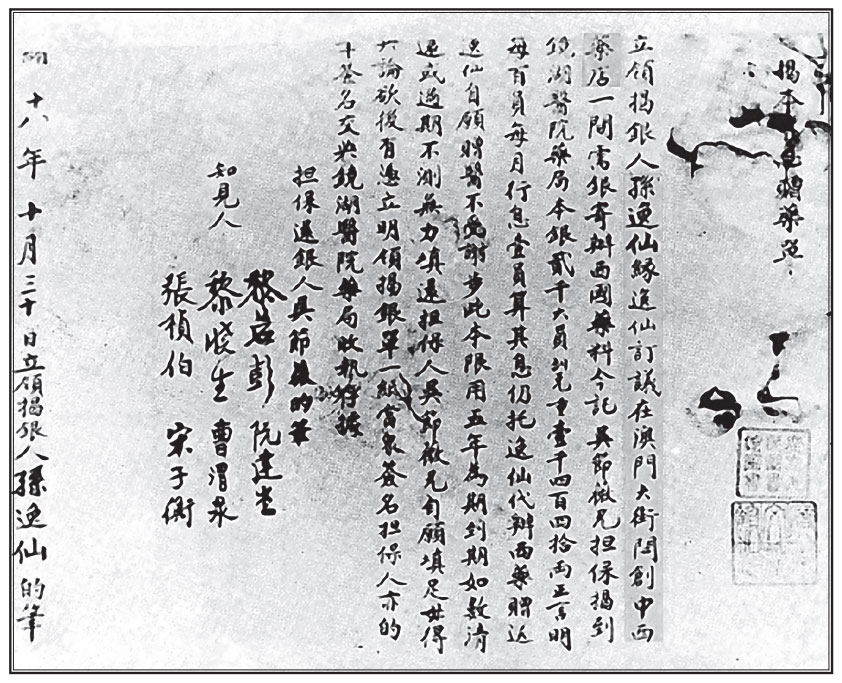 揭本息贈藥單
立領揭銀人孫逸仙緣逸仙訂議在澳門大街開創中西
藥店一間需銀寄辦西國藥料今託吳節微兄担保揭到
鏡湖醫院藥局本銀貳千大員到兌重壹千四百四拾両正言明
每百員每月行息壹員算其息仍托逸仙代辦西藥贈送
逸仙自願贈醫不受謝步此本限用五年為期到期如數清
還或過期不測無力填還担保人吳節微兄自願填足毋得
論欲後有憑立明領揭銀單一紙當眾簽名担保人亦的
簽名交與鏡湖醫院藥局收執存據
担保還銀人吳節薇的筆
知見人 黎若彭 阮建堂
黎曉生 曹渭泉
張楨伯 宋子衡
十八年十月三十日立領揭銀人孫逸仙的筆